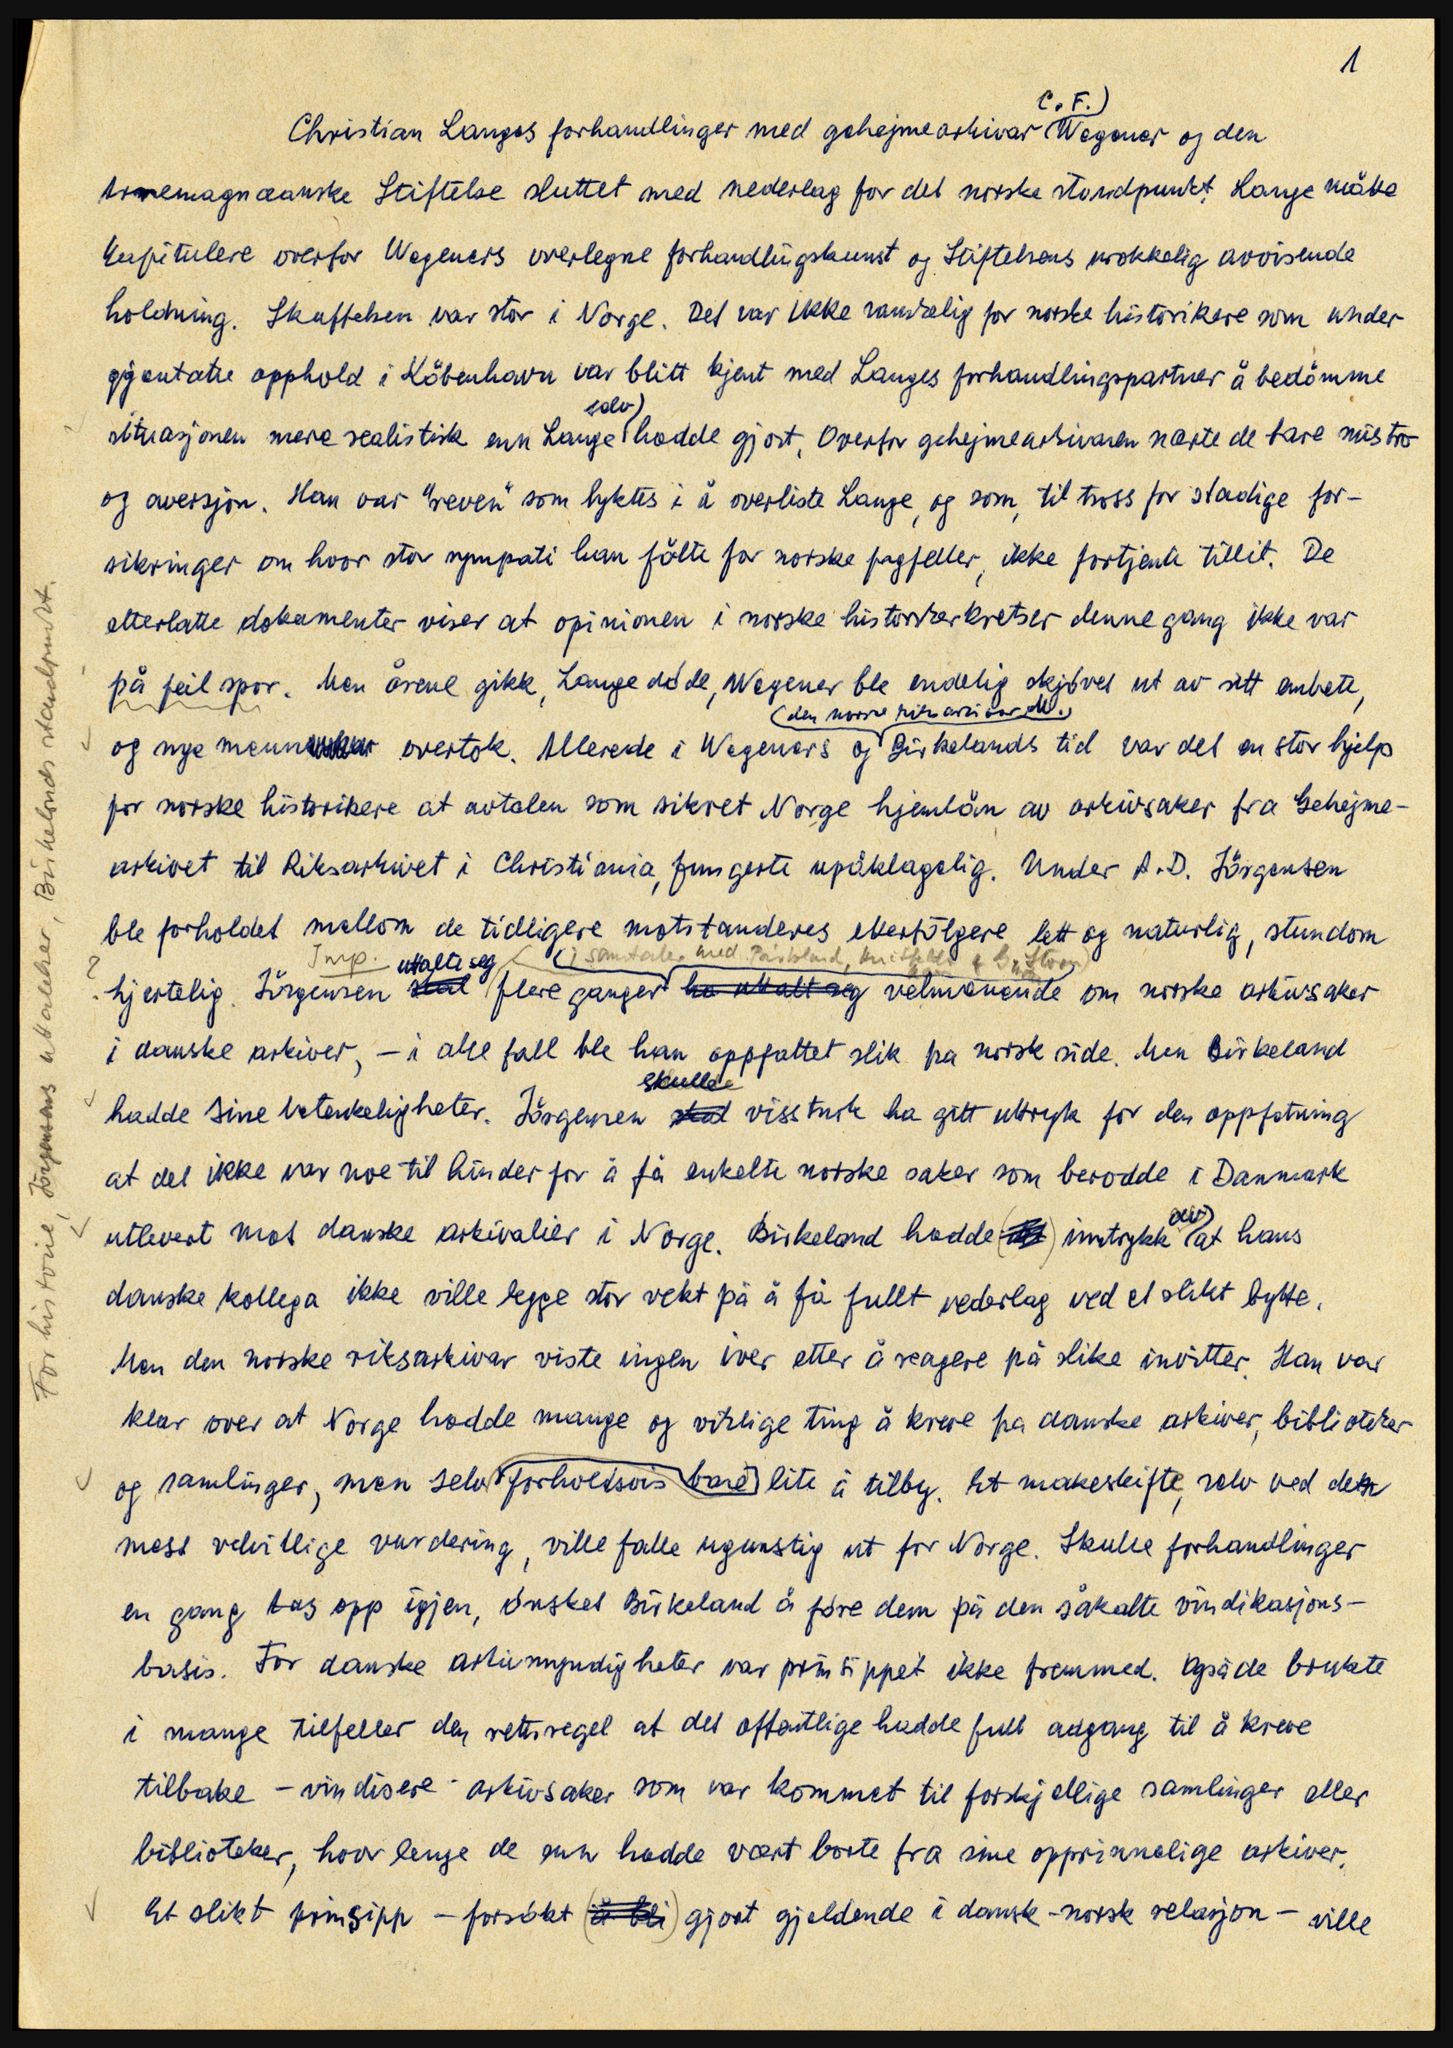 1
C. F.)
Christian Langes forhandlinger med gehejmearkivar (Wegener og den
Arnemagnæanske Stiftelse sluttet med nederlag for det norske standpunkt. Lange måtte
kapitulere overfor Wegeners overlegne forhandlingskunst og Stiftelsens urokkelig avvisende
holdning. Skuffelsen var stor i Norge. Det var ikke vanskelig for norske historikere som under
gjentatte opphold i København var blitt kjent med Langes forhandlingspartner å bedømme
selv)
situasjonen mere realistisk enn Lange hadde gjort. Overfor gehejmearkivaren nærte de bare mistro
og aversjon. Han var "reven" som lyktes i å overliste Lange, og som, til tross for stadige for-
sikringer om hvor stor sympati han følte for norske fagfeller, ikke fortjente tillit. De
etterlatte dokumenter viser at opinionen i norske historikerkretser denne gang ikke var
på feil spor. Men årene gikk, Lange døde, Wegener ble endelig skjøvet ut av sitt embete,
(den norske riksarkivar M.)
og nye menn overtok. Allerede i Wegeners og Birkelands tid var det en stor hjelp
for norske historikere at avtalen som sikret Norge hjemlån av arkivsaker fra Gehejme-
arkivet til Riksarkivet i Christiania, fungerte upåklagelig. Under A.D. Jörgensen
ble forholdet mellom de tidligere motstanderes etterfölgere lett og naturlig, stundom
Imp. uttalte seg (i samtaler med Birkeland, & G. Storm)
? hjertelig. Jörgensen skal flere ganger ha uttalt seg velmenende om norske arkivsaker
i danske arkiver, – i alle fall ble han oppfattet slik på norsk side. Men Birkeland
skulle
hadde sine betenkeligheter. Jörgensen skal visstnok ha gitt uttrykk for den oppfatning
at det ikke var noe til hinder for å få enkelte norske saker som berodde i Danmark
av)
utlevert mot danske arkivalier i Norge. Birkeland hadde inntrykk at hans
danske kollega ikke ville legge stor vekt på å få fullt vederlag ved et slikt bytte.
Men den norske riksarkivar viste ingen iver etter å reagere på slike invitter. Han var
klar over at Norge hadde mange og viktige ting å kreve fra danske arkiver, biblioteker
og samlinger, men selv forholdsvis bare lite å tilby. Et makeskifte, selv ved den
mest velvillige vurdering, ville falle ugunstig ut for Norge. Skulle forhandlinger
en gang tas opp igjen, ønsket Birkeland å føre dem på den såkalte vindikasjons-
basis. For danske arkivmyndigheter var prinsippet ikke fremmed. Også de brukte
i mange tilfeller den rettsregel at det offentlige hadde full adgang til å kreve
tilbake – vindisere – arkivsaker som var kommet til forskjellige samlinger eller
biblioteker, hvor lenge de enn hadde vært borte fra sine opprinnelige arkiver.
Et slikt prinsipp – forsøkt (å bli) gjort gjeldende i dansk-norsk relasjon – ville
Forhistorie, Jörgensens uttalelser, Birkelands standpunkt.